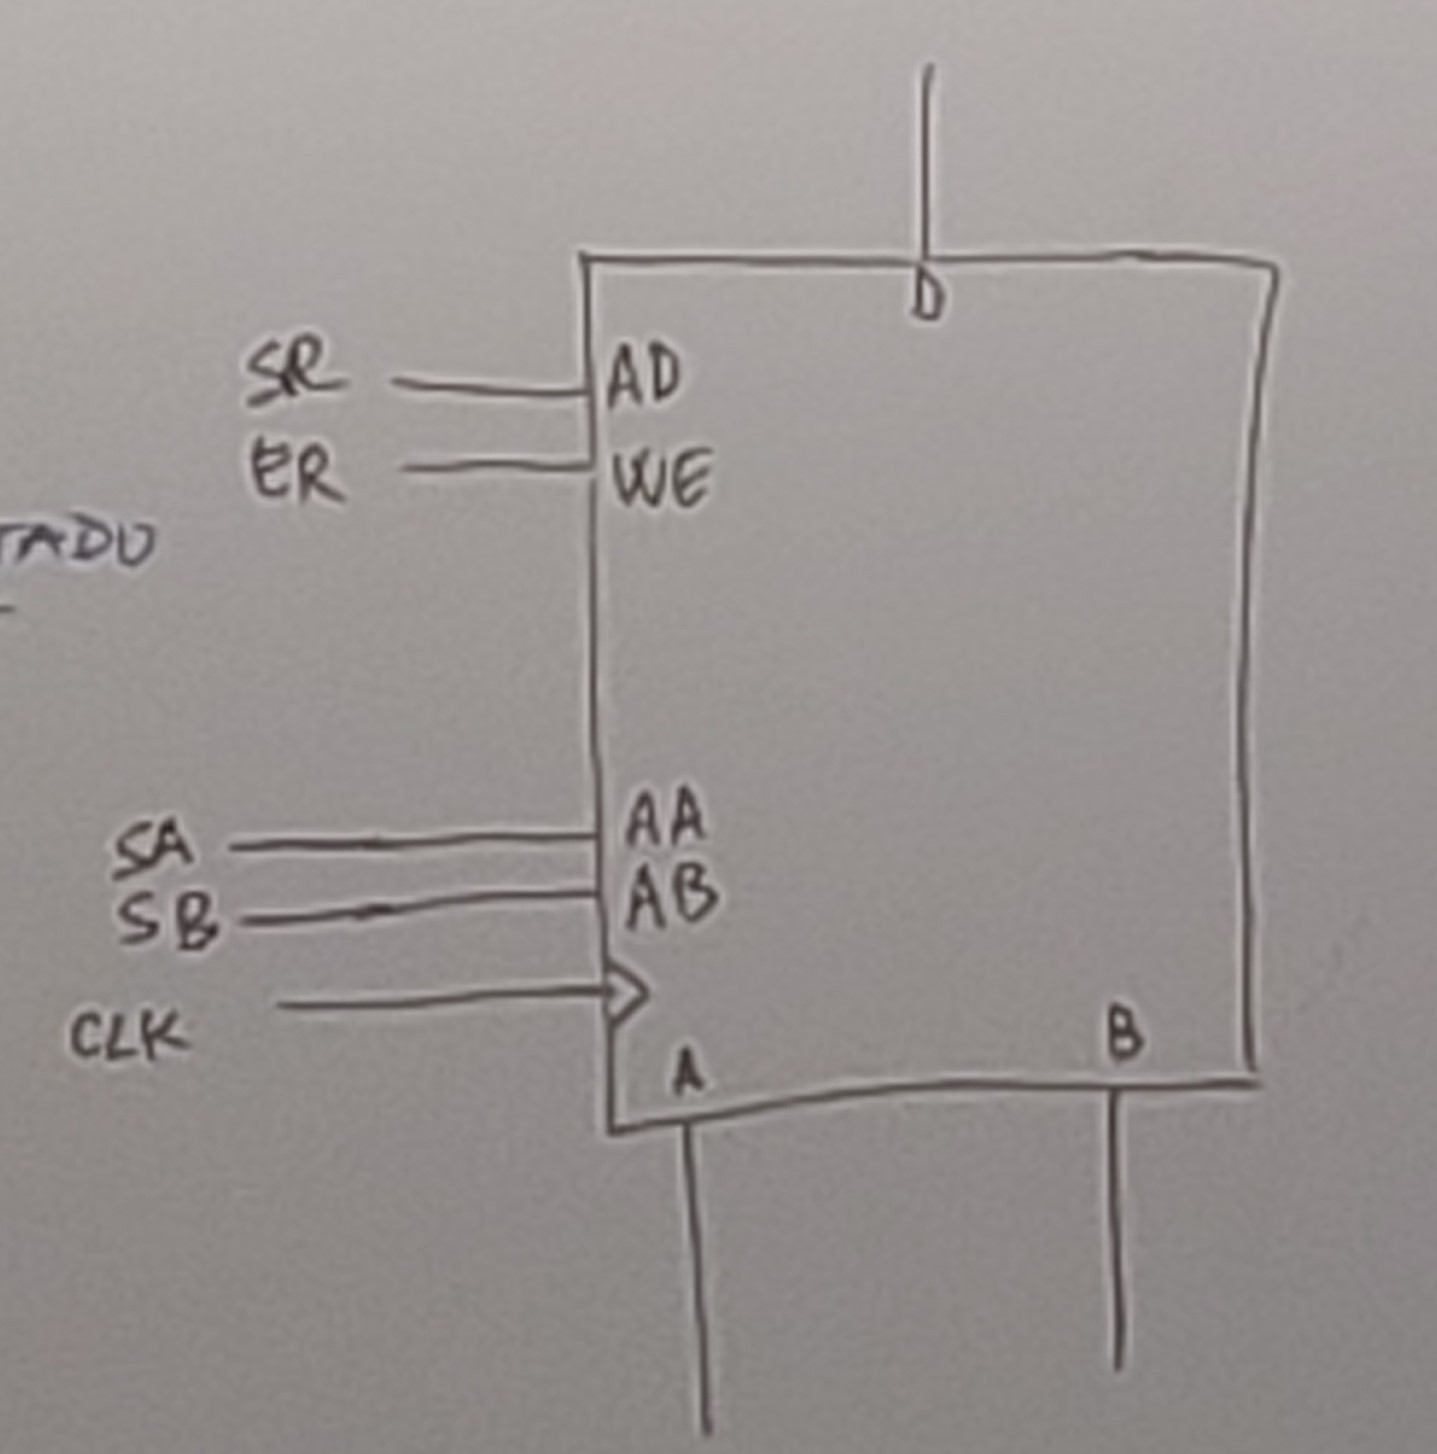 D
SR AD
ER WE
TADO
SA AA
SB AB
CLK
A B